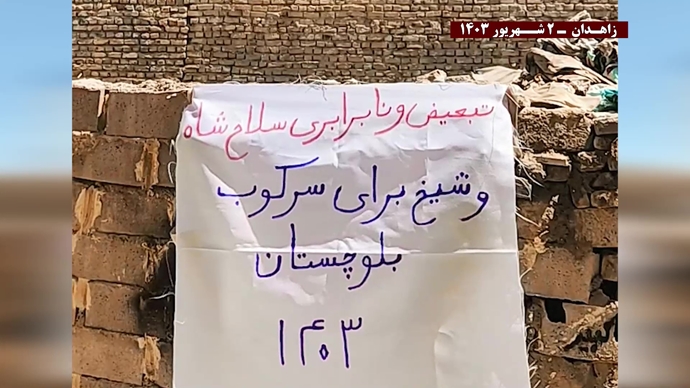 زاهدان - ۲ شهریور ۱۴۰۳
تبعیض و نابرابری سلاح شاه
و شیخ برای سرکوب
بلوچستان
۱۴۰۳